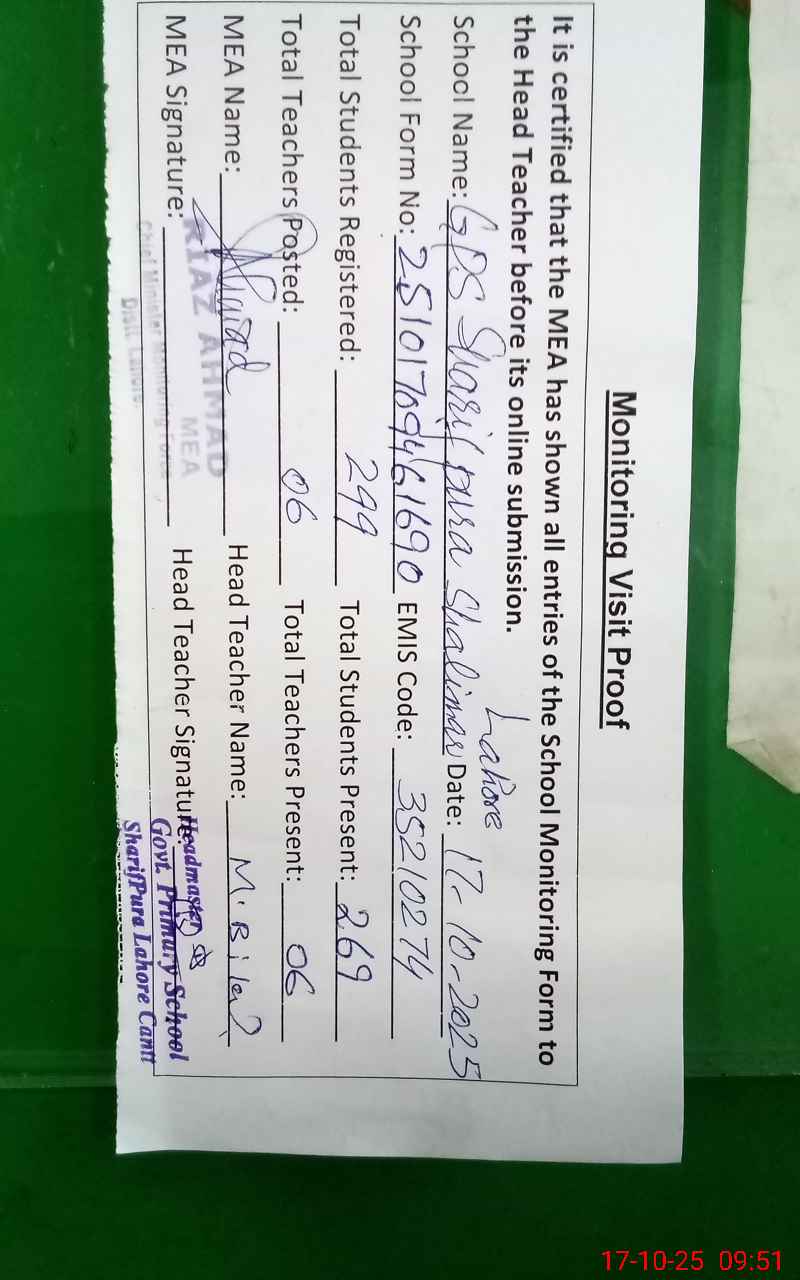 Monitoring Visit Proof
It is certified that the MEA has shown all entries of the School Monitoring Form to
the Head Teacher before its online submission.
Lahore
School Name: GPS Sharif pura Shalimar Date: 17-10-2025
School Form No: 25101709461690 EMIS Code: 35210274
Total Students Registered: 299 Total Students Present: 269
Total Teachers Posted: 06 Total Teachers Present: 06
MEA Name: Head Teacher Name: M. Bilal
RIAZ AHMAD
MEA
MEA Signature: Head Teacher Signature:
Chief Minister Monitoring Force
Distt. Lahore.
Headmaster
Govt. Primary School
SharifPura Lahore Cantt
17-10-25 09:51